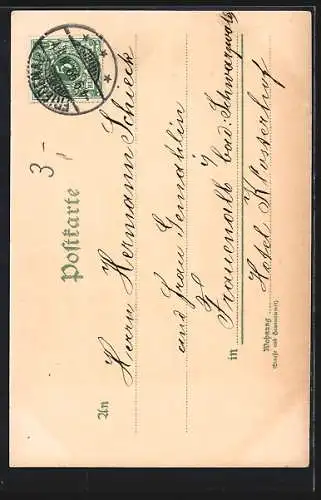 3-
Postkarte
An Herrn Hermann Schieck
und Frau Gemahlin
in Frauenalb bad: Schwarzwald
Hotel Klosterhof
Wohnung
(Straße und Hausnummer)